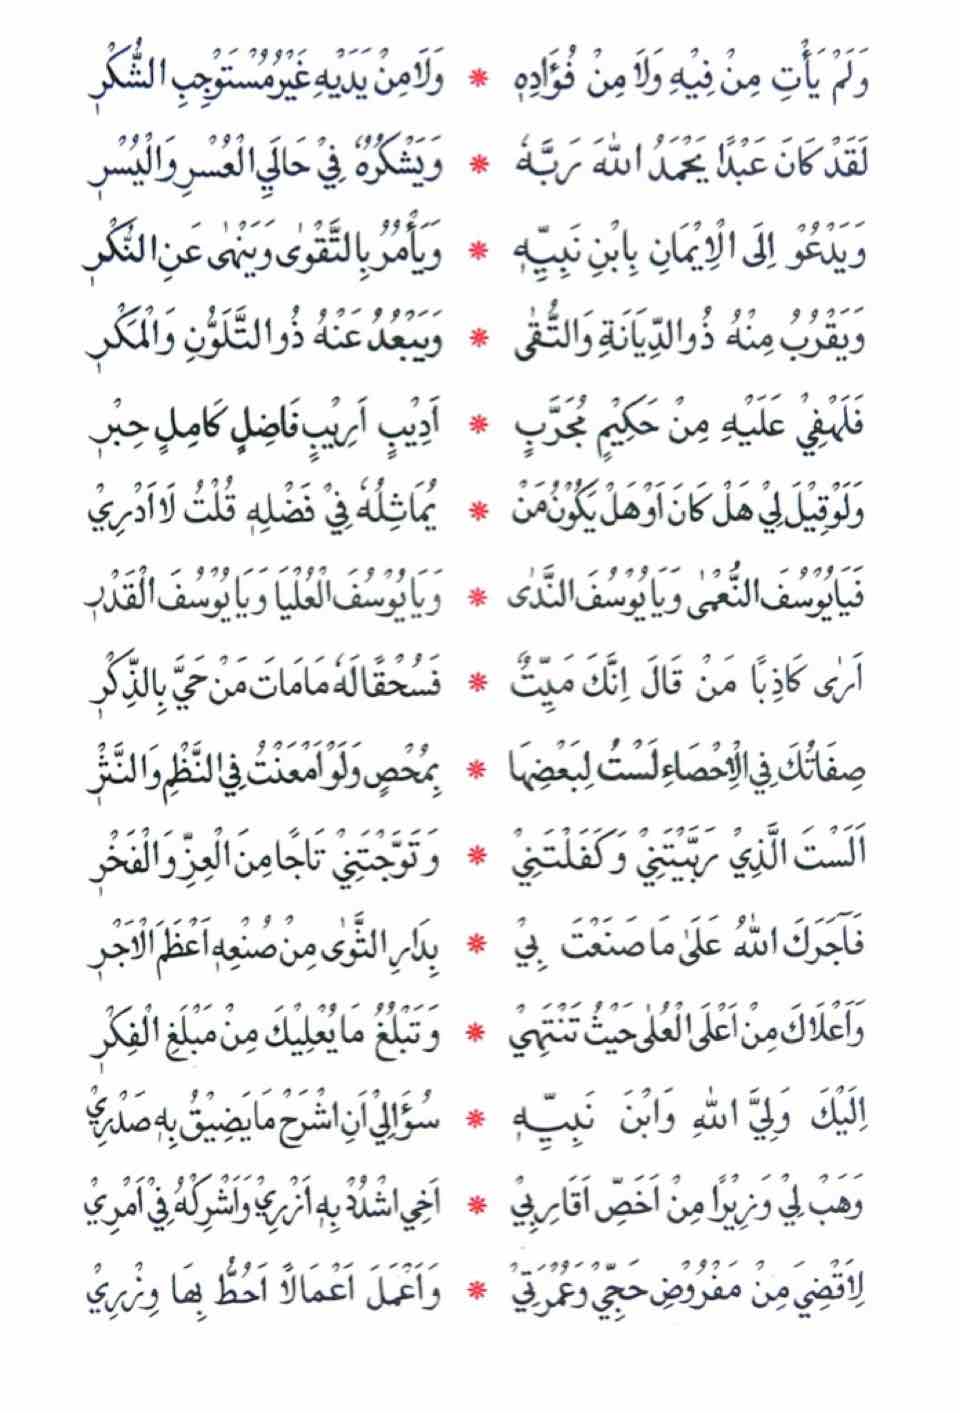 وَلَمْ يَأْتِ مِنْ فِيْهِ وَلَا مِنْ فُؤَادِهٖ * وَلَا مِنْ يَدَيْهِ غَيْرُ مُسْتَوْجِبِ الشُّكْرِ
لَقَدْ كَانَ عَبْدًا يَحْمَدُ اللهَ رَبَّهٗ * وَيَشْكُرُهٗ فِيْ حَالَيِ الْعُسْرِ وَالْيُسْرِ
وَيَدْعُوْ اِلَى الْاِيْمَانِ بِابْنِ نَبِيِّهٖ * وَيَأْمُرُ بِالتَّقْوٰى وَيَنْهٰى عَنِ النُّكْرِ
وَيَقْرُبُ مِنْهُ ذُو الدِّيَانَةِ وَالتُّقٰى * وَيَبْعُدُ عَنْهُ ذُو التَّلَوُّنِ وَالْمَكْرِ
فَلَهْفِيْ عَلَيْهِ مِنْ حَكِيْمٍ مُجَرَّبٍ * اَدِيْبٍ اَرِيْبٍ فَاضِلٍ كَامِلٍ حِبْرِ
وَلَوْ قِيْلَ لِيْ هَلْ كَانَ اَوْ هَلْ يَكُوْنُ مَنْ * يُمَاثِلُهٗ فِيْ فَضْلِهٖ قُلْتُ لَا اَدْرِيْ
فَيَا يُوْسُفَ النُّعْمٰى وَيَا يُوْسُفَ النَّدٰى * وَيَا يُوْسُفَ الْعُلْيَا وَيَا يُوْسُفَ الْقَدْرِ
اَرٰى كَاذِبًا مَنْ قَالَ اِنَّكَ مَيِّتٌ * فَسُحْقًا لَهٗ مَا مَاتَ مَنْ حَيَّ بِالذِّكْرِ
صِفَاتُكَ فِي الْاِحْصَاءِ لَسْتُ لِبَعْضِهَا * بِمُحْصٍ وَلَوْ اَمْعَنْتُ فِي النَّظْمِ وَالنَّثْرِ
اَلَسْتَ الَّذِيْ رَبَّيْتَنِيْ وَكَفَلْتَنِيْ * وَتَوَّجْتَنِيْ تَاجًا مِنَ الْعِزِّ وَالْفَخْرِ
فَآجَرَكَ اللهُ عَلٰى مَا صَنَعْتَ بِيْ * بِدَارِ الثَّوٰى مِنْ صُنْعِهٖ اَعْظَمَ الْاَجْرِ
وَاَعْلَاكَ مِنْ اَعْلَى الْعُلٰى حَيْثُ تَنْتَهِيْ * وَتَبْلُغُ مَا يُعْلِيْكَ مِنْ مَبْلَغِ الْفِكْرِ
اِلَيْكَ وَلِيَّ اللهِ وَابْنَ نَبِيِّهٖ * سُؤَالِيْ اَنِ اشْرَحْ مَا يَضِيْقُ بِهٖ صَدْرِيْ
وَهَبْ لِيْ وَزِيْرًا مِنْ اَخَصِّ اَقَارِبِيْ * اَخِي اشْدُدْ بِهٖ اَزْرِيْ وَاَشْرِكْهُ فِيْ اَمْرِيْ
لِاَقْضِيَ مِنْ مَفْرُوْضِ حَجِّيْ وَعُمْرَتِيْ * وَاَعْمَلَ اَعْمَالًا اَحُطُّ بِهَا وِزْرِيْ